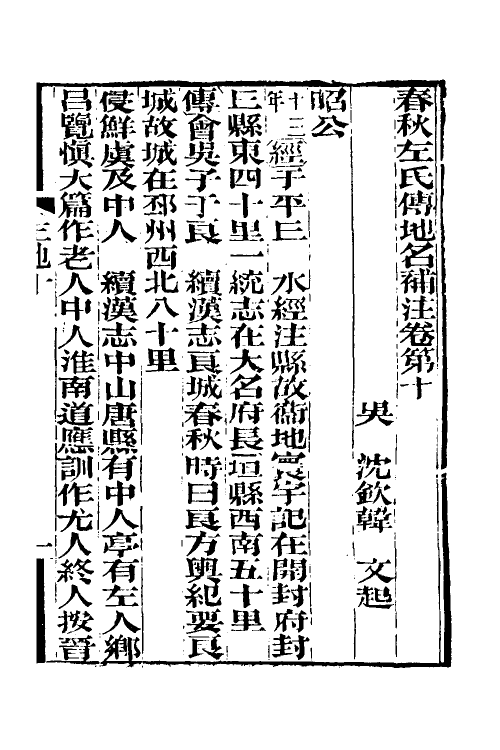 春秋左氏傳地名補注卷第十
吳　沈欽韓　文起
昭公
十三年經于平丘　水經注縣故衞地寰宇記在開封府封
丘縣東四十里一統志在大名府長垣縣西南五十里
傳會吳子于良　續漢志良城春秋時曰良方輿紀要良
城故城在邳州西北八十里
侵鮮虞及中人　續漢志中山唐縣有中人亭有左人鄉
呂覽愼大篇作老人中人淮南道應訓作尤人終人按晉
左地十
一